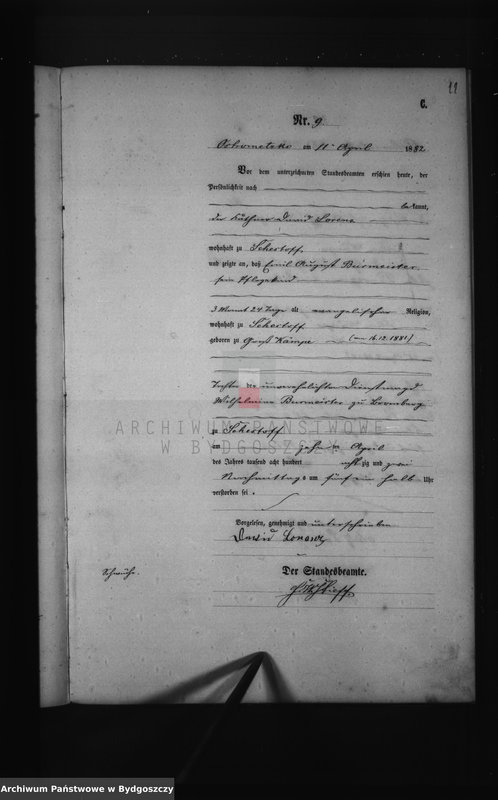 11
C.
Nr. 9
am 11. April 1882
Vor dem unterzeichneten Standesbeamten erschien heute, der
Persönlichkeit nach
bekannt,
der Käthner David Lorenz
wohnhaft zu
und zeigte an, daß Emil August Burmeister
sein Pflegekind
3 Monat 24 Tage alt evangelischer Religion,
wohnhaft zu
geboren zu Groß Kämpe (am 16.12.1881)
der unverehelichten Dienstmagd
Wilhelmine Burmeister zu Bromberg
ARCHIWUM PAŃSTWOWE
W BYDGOSZCZY
zu
am zehnten April
des Jahres tausend acht hundert achtzig und zwei
Nachmittags um fünf ein halb Uhr
verstorben sei.
Vorgelesen, genehmigt und unterschrieben
David Lorenz
Der Standesbeamte.
Archiwum Państwowe w Bydgoszczy